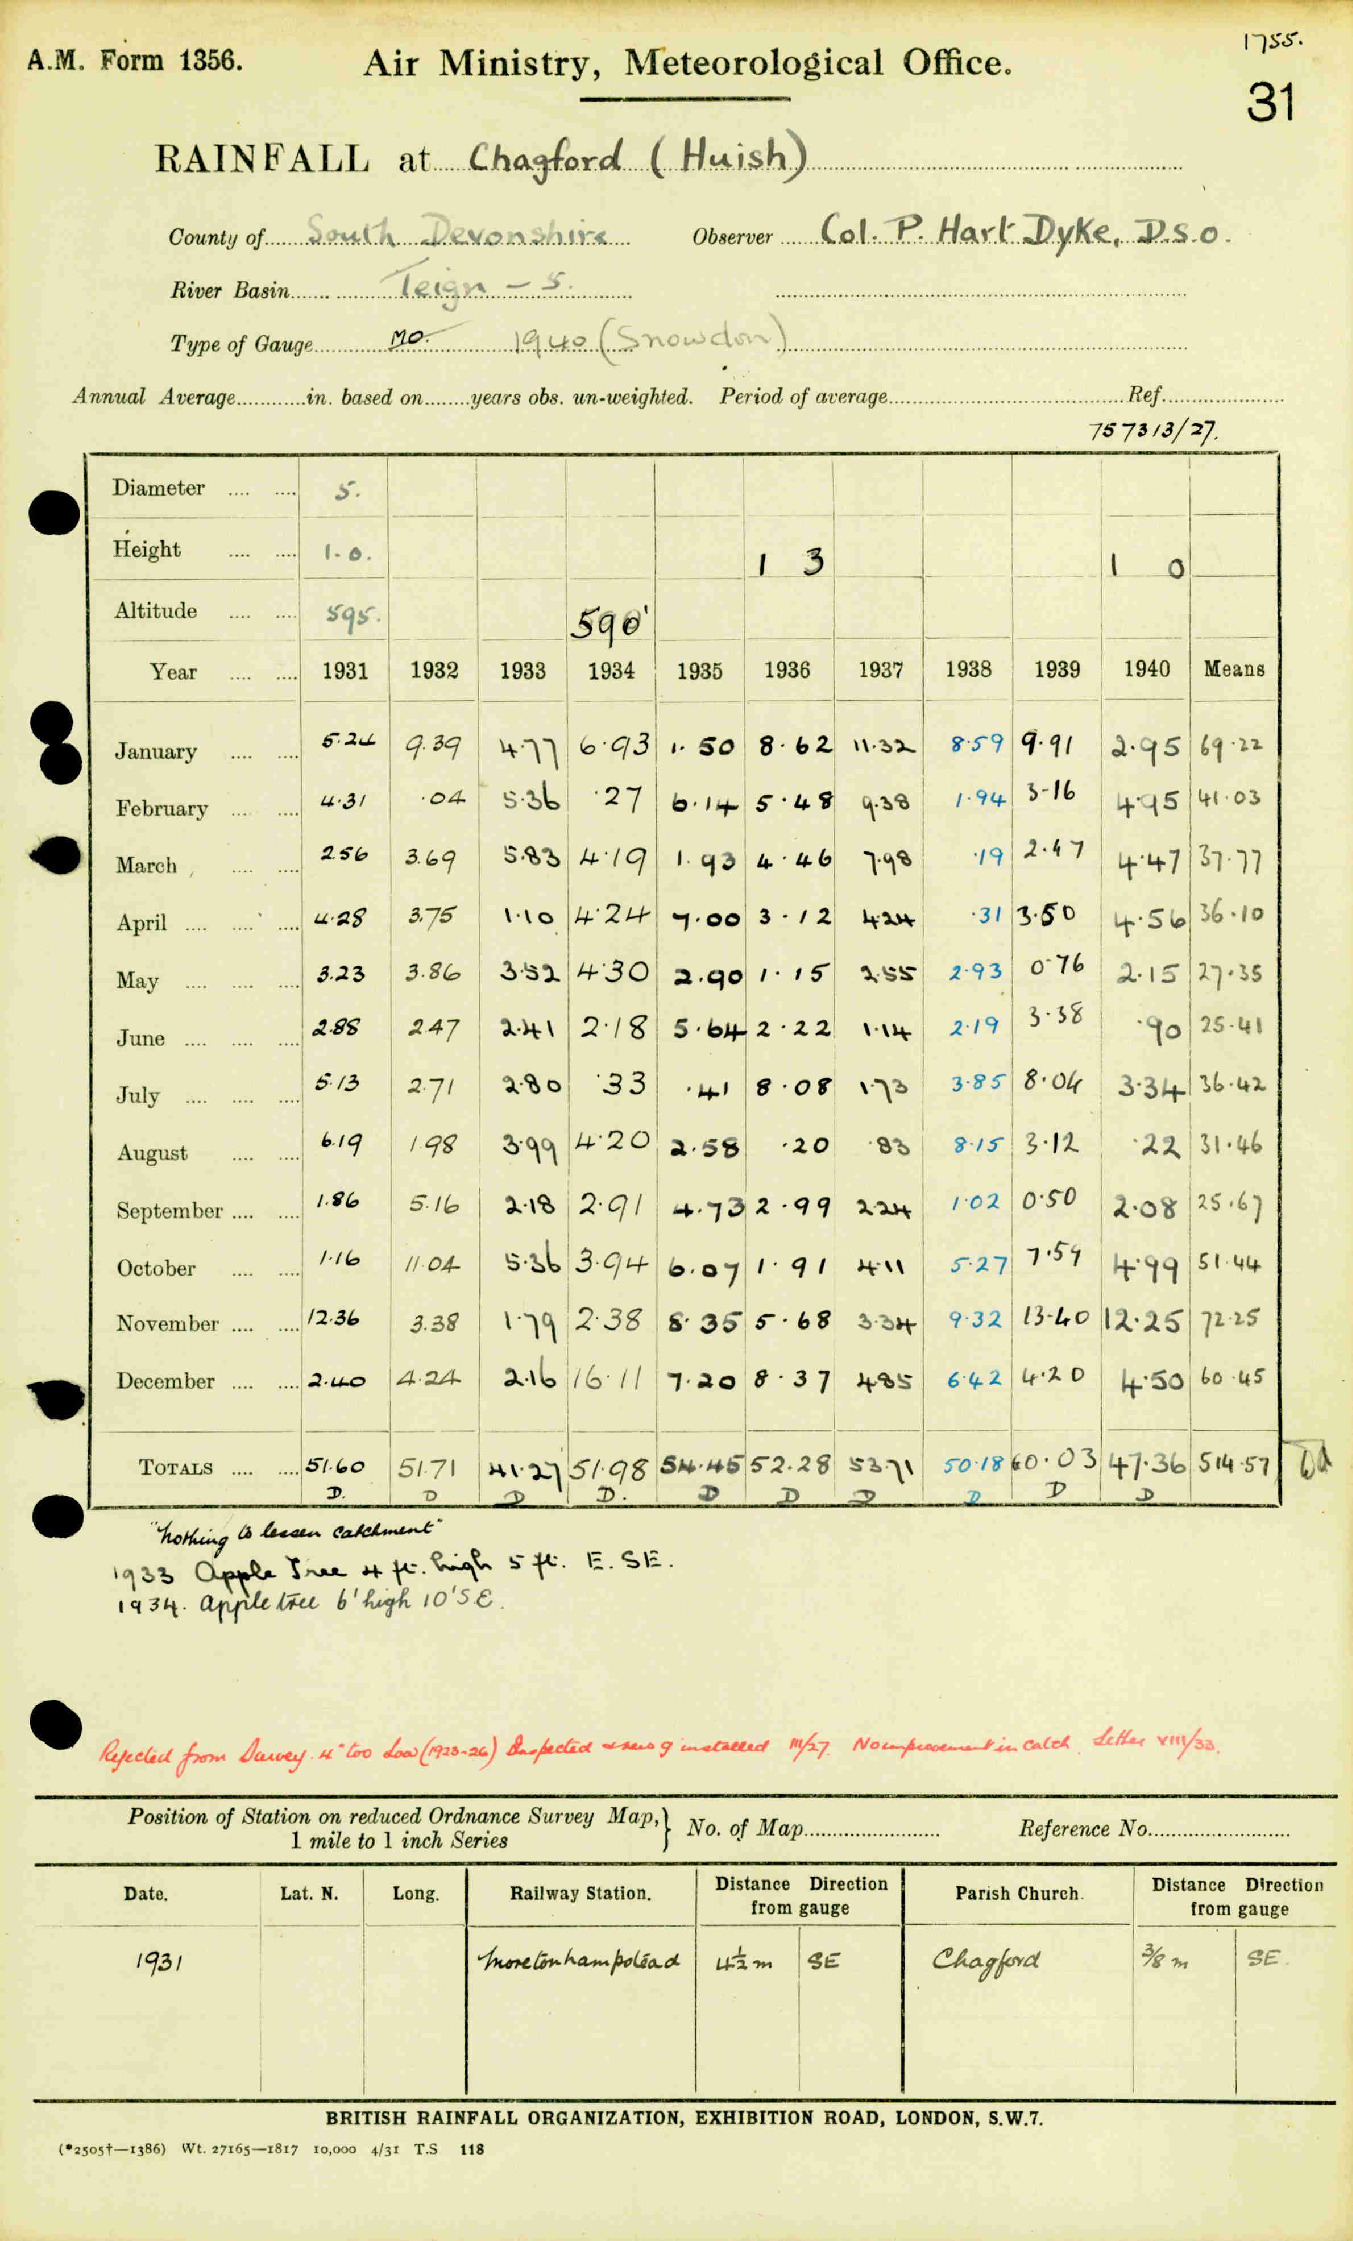 1755.
A.M. Form 1356. Air Ministry, Meteorological Office.
31
RAINFALL at Chagford (Huish)
County of South Devonshire Observer Col. P. Hart Dyke, D.S.O.
River Basin Teign - 5.
Type of Gauge MO. 1940 (Snowdon)
Annual Average in. based on years obs. un-weighted. Period of average Ref.
757313/27.
Diameter 5.
Height 1.0. 1 3 1 0
Altitude 595. 590'
Year 1931 1932 1933 1934 1935 1936 1937 1938 1939 1940 Means
January 5.24 9.39 4.77 6.93 1.50 8.62 11.32 8.59 9.91 2.95 69.22
February 4.31 .04 5.36 .27 6.14 5.48 9.38 1.94 3.16 4.95 41.03
March 2.56 3.69 5.83 4.19 1.93 4.46 7.98 .19 2.47 4.47 37.77
April 4.28 3.75 1.10 4.24 7.00 3.12 4.24 .31 3.50 4.56 36.10
May 3.23 3.86 3.52 4.30 2.90 1.15 2.55 2.93 0.76 2.15 27.35
June 2.88 2.47 2.41 2.18 5.64 2.22 1.14 2.19 3.38 .90 25.41
July 5.13 2.71 2.80 .33 .41 8.08 1.73 3.85 8.04 3.34 36.42
August 6.19 1.98 3.99 4.20 2.58 .20 .83 8.15 3.12 .22 31.46
September 1.86 5.16 2.18 2.91 4.73 2.99 2.24 1.02 0.50 2.08 25.67
October 1.16 11.04 5.36 3.94 6.07 1.91 4.11 5.27 7.59 4.99 51.44
November 12.36 3.38 1.79 2.38 8.35 5.68 3.34 9.32 13.40 12.25 72.25
December 2.40 4.24 2.16 16.11 7.20 8.37 4.85 6.42 4.20 4.50 60.45
TOTALS 51.60 51.71 41.27 51.98 54.45 52.28 53.71 50.18 60.03 47.36 514.57
D. D D D. D D D D D D
"Nothing to lessen catchment"
1933 Apple Tree 4 ft. high 5 ft. E. SE.
1934. Apple tree 6' high 10' S E.
Rejected from Survey. 4" too Low (1923-26) Inspected & new g installed III/27. No improvement in catch. Letter VIII/33.
Position of Station on reduced Ordnance Survey Map,} No. of Map Reference No.
1 mile to 1 inch Series
Date. Lat. N. Long. Railway Station. Distance Direction from gauge Parish Church. Distance Direction from gauge
1931 Moretonhampstead 4½ m SE Chagford 3/8 m SE.
BRITISH RAINFALL ORGANIZATION, EXHIBITION ROAD, LONDON, S.W.7.
(*2505†—1386) Wt. 27165—1817 10,000 4/31 T.S 118